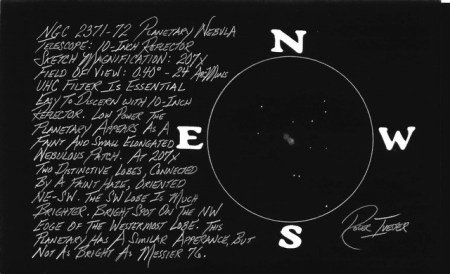 NGC 2371-72 Planetary Nebula
Telescope: 10-Inch Reflector
Sketch Magnification: 207x
Field Of View: 0.40° - 24 ArcMins
UHC Filter Is Essential
Easy To Discern With 10-Inch
Reflector. Low Power The
Planetary Appears As A
Faint And Small Elongated
Nebulous Patch. At 207x
Two Distinctive Lobes, Connected
By A Faint Haze, Oriented
NE-SW. The SW Lobe Is Much
Brighter. Bright Spot On The NW
Edge Of The Westermost Lobe. This
Planetary Has A Similar Apperance, But
Not As Bright As Messier 76.
N
E
W
S
Roger Ivester